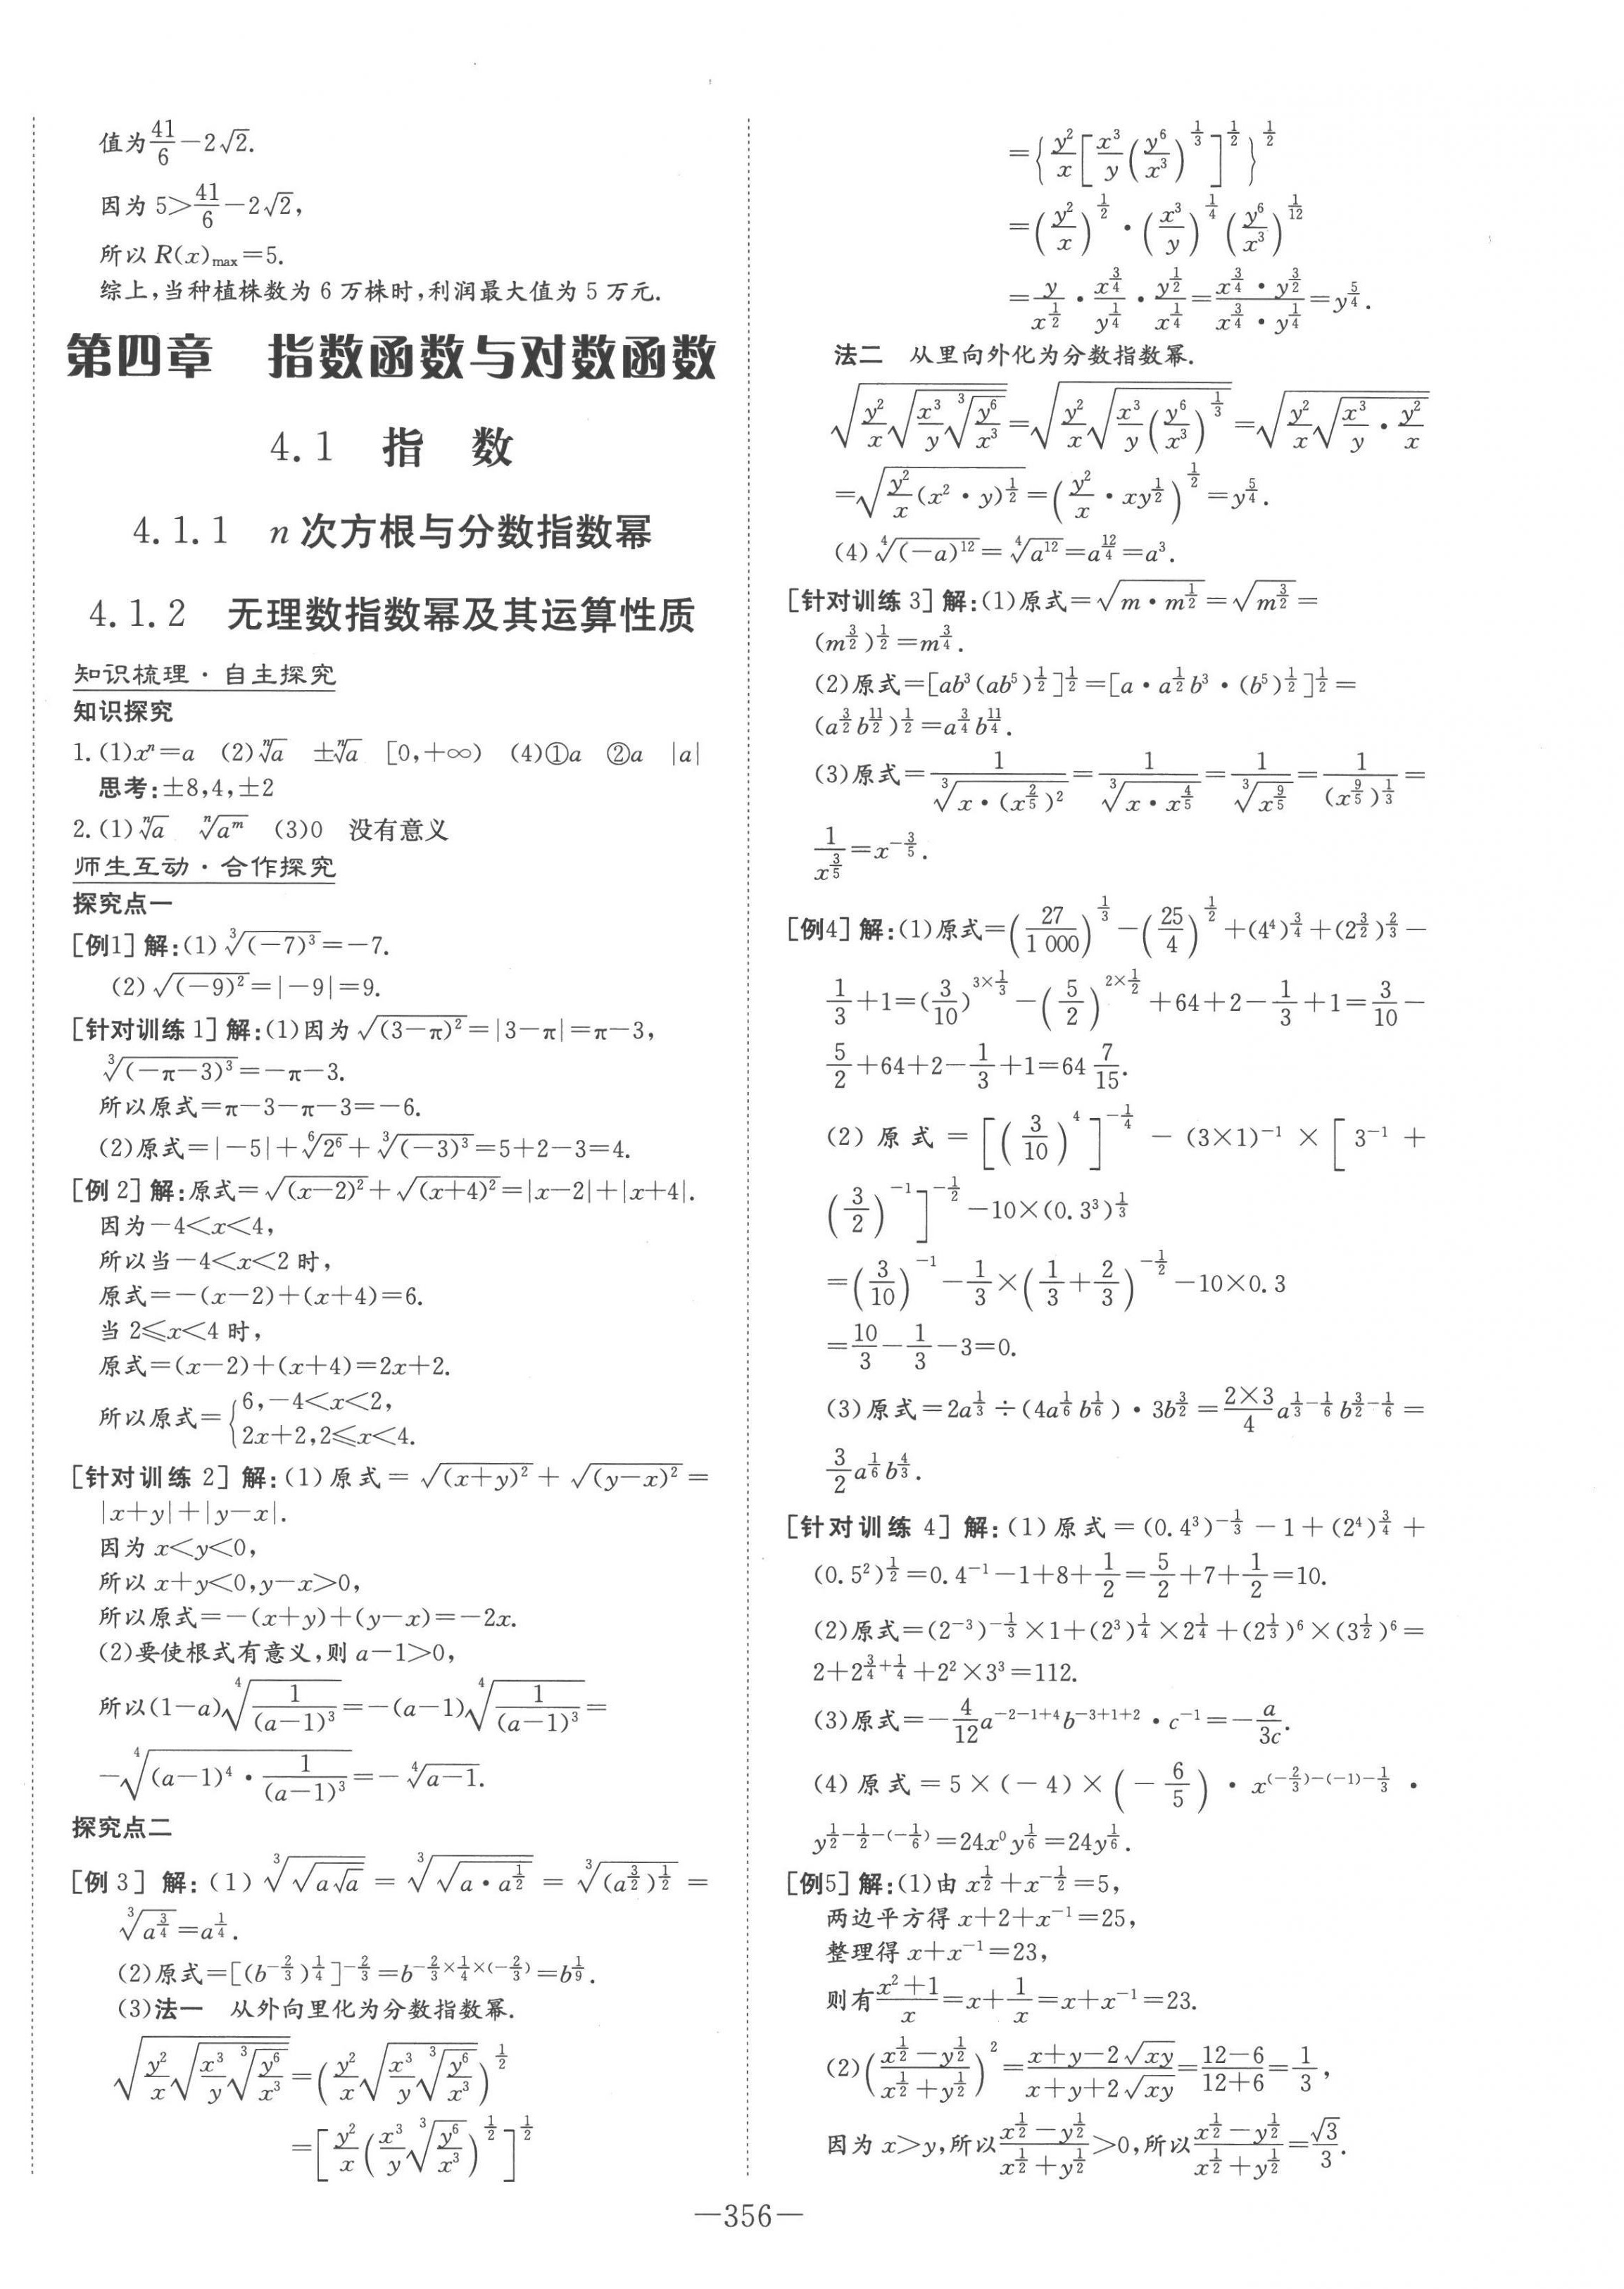 值为41/6−2√2.
因为 5>41/6−2√2,
所以 R(x)max=5.
综上,当种植株数为 6 万株时,利润最大值为 5 万元.
第四章 指数函数与对数函数
4.1 指 数
4.1.1 n 次方根与分数指数幂
4.1.2 无理数指数幂及其运算性质
知识梳理·自主探究
知识探究
1.(1)xⁿ=a (2)ⁿ√a ±ⁿ√a [0,+∞) (4)①a ②a |a|
思考:±8,4,±2
2.(1)ⁿ√a ⁿ√(aᵐ) (3)0 没有意义
师生互动·合作探究
探究点一
[例1] 解:(1)³√((−7)³)=−7.
(2)√((−9)²)=|−9|=9.
[针对训练 1] 解:(1)因为√((3−π)²)=|3−π|=π−3,
³√((−π−3)³)=−π−3.
所以原式=π−3−π−3=−6.
(2)原式=|−5|+⁶√(2⁶)+³√((−3)³)=5+2−3=4.
[例 2] 解:原式=√((x−2)²)+√((x+4)²)=|x−2|+|x+4|.
因为−4<x<4,
所以当−4<x<2 时,
原式=−(x−2)+(x+4)=6.
当 2⩽x<4 时,
原式=(x−2)+(x+4)=2x+2.
所以原式={6,−4<x<2,
2x+2,2⩽x<4.
[针对训练 2] 解:(1)原式=√((x+y)²)+√((y−x)²)=
|x+y|+|y−x|.
因为 x<y<0,
所以 x+y<0,y−x>0,
所以原式=−(x+y)+(y−x)=−2x.
(2)要使根式有意义,则 a−1>0,
所以(1−a)⁴√(1/(a−1)³)=−(a−1)⁴√(1/(a−1)³)=
−⁴√((a−1)⁴·1/(a−1)³)=−⁴√(a−1).
探究点二
[例 3] 解:(1)³√(√(a√a))=³√(√(a·a^(1/2)))=³√((a^(3/2))^(1/2))=
³√(a^(3/4))=a^(1/4).
(2)原式=[(b^(−2/3))^(1/4)]^(−2/3)=b^(−2/3×1/4×(−2/3))=b^(1/9).
(3)法一 从外向里化为分数指数幂.
√(y²/x√(x³/y ³√(y⁶/x³)))=(y²/x√(x³/y ³√(y⁶/x³)))^(1/2)
=[y²/x(x³/y ³√(y⁶/x³))^(1/2)]^(1/2)
={y²/x[x³/y(y⁶/x³)^(1/3)]^(1/2)}^(1/2)
=(y²/x)^(1/2)·(x³/y)^(1/4)(y⁶/x³)^(1/12)
=y/x^(1/2)·x^(3/4)/y^(1/4)·y^(1/2)/x^(1/4)=(x^(3/4)·y^(3/2))/(x^(3/4)·y^(1/4))=y^(5/4).
法二 从里向外化为分数指数幂.
√(y²/x√(x³/y ³√(y⁶/x³)))=√(y²/x√(x³/y(y⁶/x³)^(1/3)))=√(y²/x√(x³/y·y²/x))
=√(y²/x(x²·y)^(1/2))=(y²/x·xy^(1/2))^(1/2)=y^(5/4).
(4)⁴√((−a)¹²)=⁴√(a¹²)=a^(12/4)=a³.
[针对训练 3] 解:(1)原式=√(m·m^(1/2))=√(m^(3/2))=
(m^(3/2))^(1/2)=m^(3/4).
(2)原式=[ab³(ab⁵)^(1/2)]^(1/2)=[a·a^(1/2)b³·(b⁵)^(1/2)]^(1/2)=
(a^(3/2)b^(11/2))^(1/2)=a^(3/4)b^(11/4).
(3)原式=1/³√(x·(x^(2/5))²)=1/³√(x·x^(4/5))=1/³√(x^(9/5))=1/(x^(9/5))^(1/3)=
1/x^(3/5)=x^(−3/5).
[例4] 解:(1)原式=(27/1 000)^(1/3)−(25/4)^(1/2)+(4⁴)^(3/4)+(2^(3/2))^(2/3)−
1/3+1=(3/10)^(3×1/3)−(5/2)^(2×1/2)+64+2−1/3+1=3/10−
5/2+64+2−1/3+1=64 7/15.
(2)原式=[(3/10)⁴]^(−1/4)−(3×1)⁻¹×[3⁻¹+
(3/2)⁻¹]^(−1/2)−10×(0.3³)^(1/3)
=(3/10)⁻¹−1/3×(1/3+2/3)^(−1/2)−10×0.3
=10/3−1/3−3=0.
(3)原式=2a^(1/3)÷(4a^(1/6)b^(1/6))·3b^(3/2)=(2×3)/4 a^(1/3−1/6)b^(3/2−1/6)=
3/2 a^(1/6)b^(4/3).
[针对训练 4] 解:(1)原式=(0.4³)^(−1/3)−1+(2⁴)^(3/4)+
(0.5²)^(1/2)=0.4⁻¹−1+8+1/2=5/2+7+1/2=10.
(2)原式=(2⁻³)^(−1/3)×1+(2³)^(1/4)×2^(1/4)+(2^(1/3))⁶×(3^(1/2))⁶=
2+2^(3/4+1/4)+2²×3³=112.
(3)原式=−4/12 a^(−2−1+4)b^(−3+1+2)·c⁻¹=−a/3c.
(4)原式=5×(−4)×(−6/5)·x^((−2/3)−(−1)−1/3)·
y^(1/2−1/2−(−1/6))=24x⁰y^(1/6)=24y^(1/6).
[例5] 解:(1)由 x^(1/2)+x^(−1/2)=5,
两边平方得 x+2+x⁻¹=25,
整理得 x+x⁻¹=23,
则有(x²+1)/x=x+1/x=x+x⁻¹=23.
(2)((x^(1/2)−y^(1/2))/(x^(1/2)+y^(1/2)))²=(x+y−2√(xy))/(x+y+2√(xy))=(12−6)/(12+6)=1/3,
因为 x>y,所以(x^(1/2)−y^(1/2))/(x^(1/2)+y^(1/2))>0,所以(x^(1/2)−y^(1/2))/(x^(1/2)+y^(1/2))=√3/3.
—356—